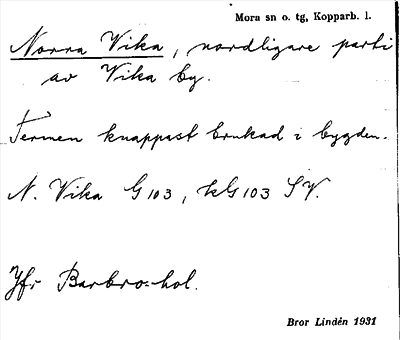 Mora sn o. tg, Kopparb. l.
Norra Vika, nordligare parti
av Vika by.
Termen knappast brukad i bygden.
N. Vika G 103, kG 103 SV.
Jfr Barbro-hol.
Bror Lindén 1931